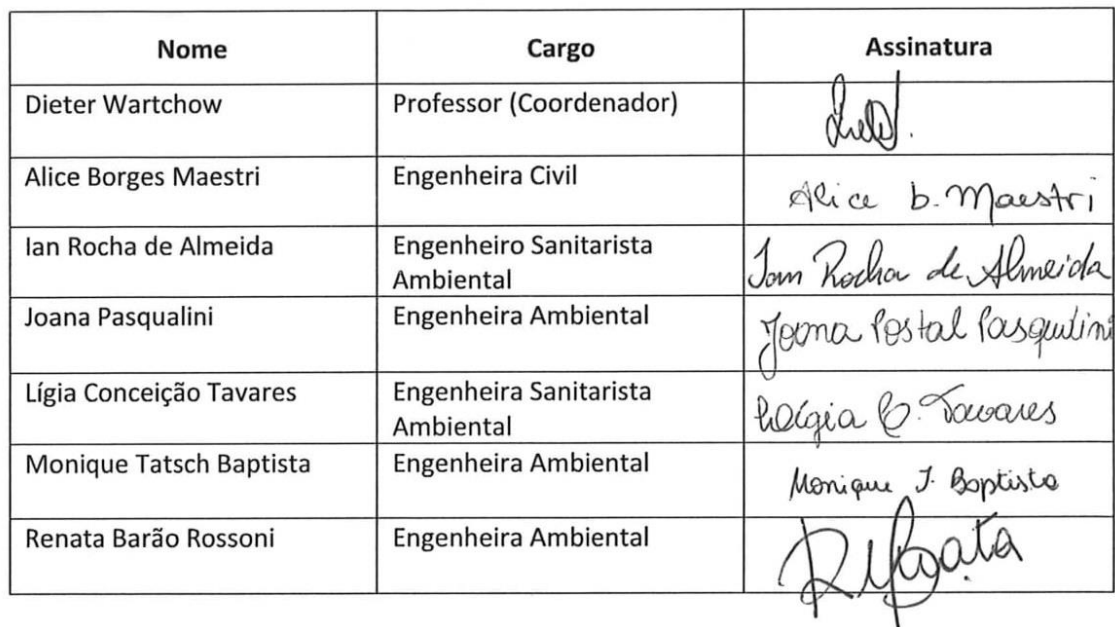 Nome Cargo Assinatura
Dieter Wartchow Professor (Coordenador)
Alice Borges Maestri Engenheira Civil Alice b. Maestri
Ian Rocha de Almeida Engenheiro Sanitarista Ian Rocha de Almeida
Ambiental
Joana Pasqualini Engenheira Ambiental Joana Postal Pasqualini
Lígia Conceição Tavares Engenheira Sanitarista Lígia C. Tavares
Ambiental
Monique Tatsch Baptista Engenheira Ambiental Monique T. Baptista
Renata Barão Rossoni Engenheira Ambiental